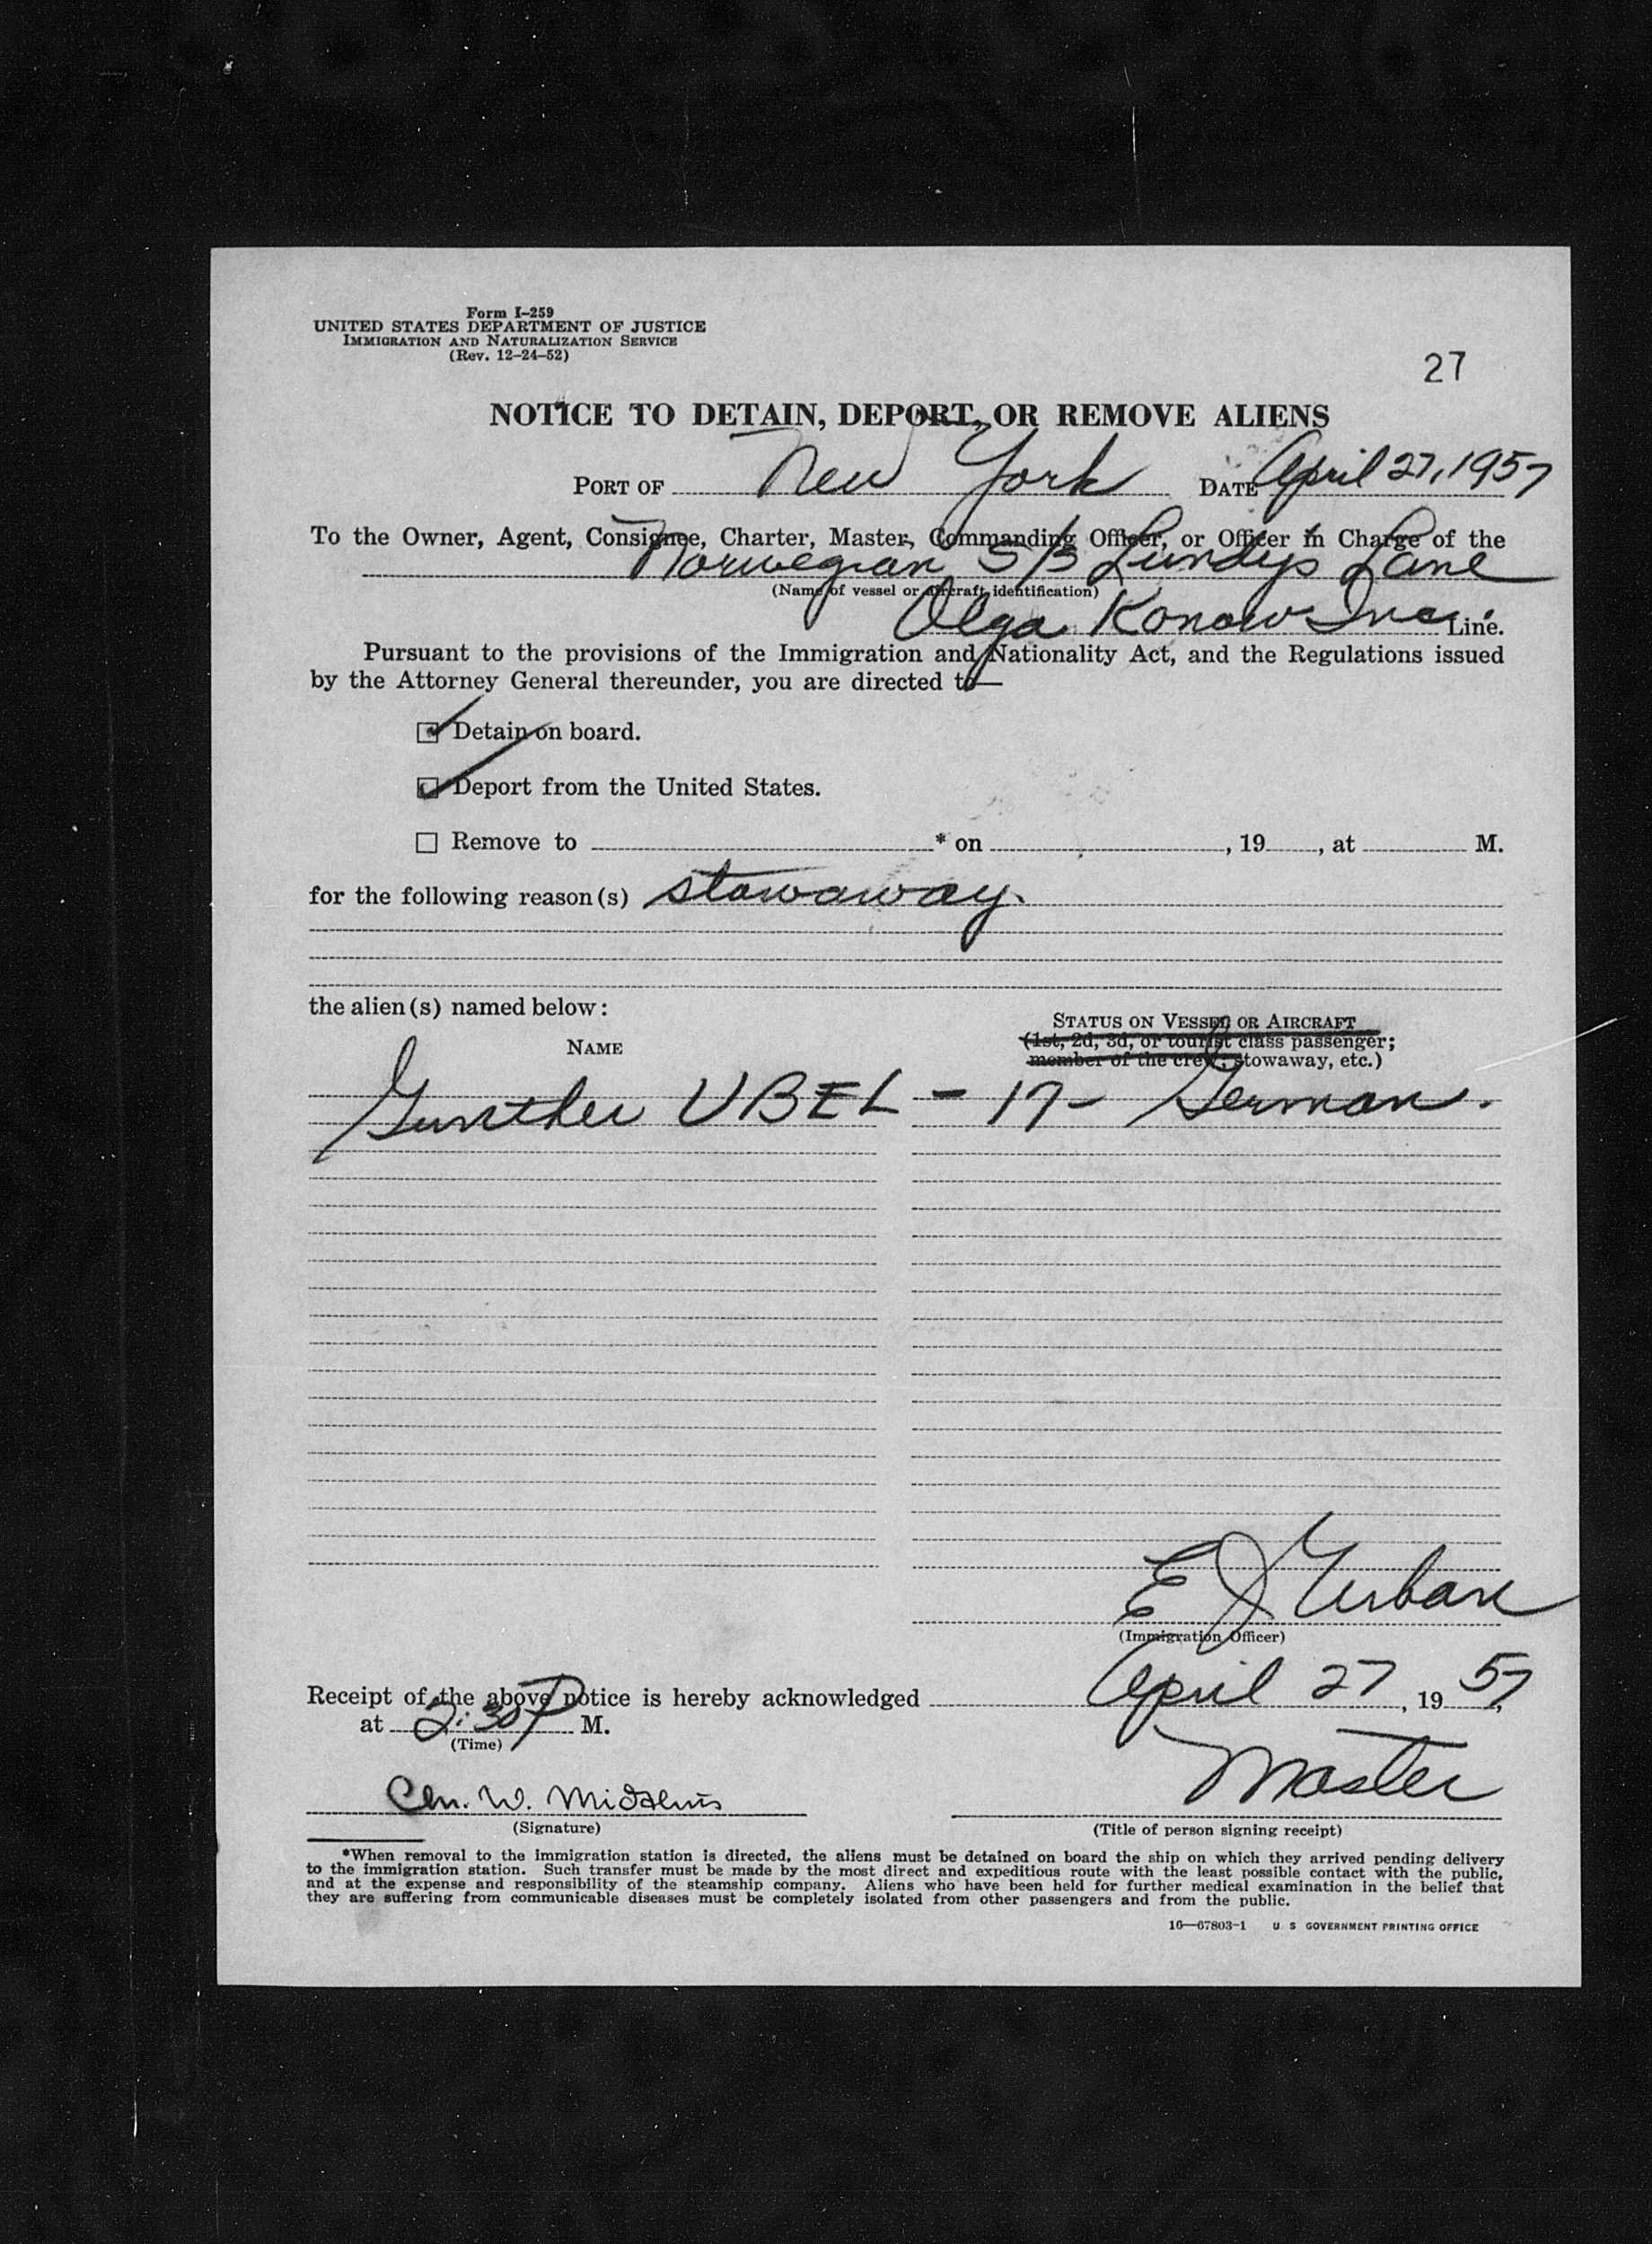 Form I-259
UNITED STATES DEPARTMENT OF JUSTICE
IMMIGRATION AND NATURALIZATION SERVICE
(Rev. 12-24-52)
27
NOTICE TO DETAIN, DEPORT, OR REMOVE ALIENS
PORT OF New York DATE April 27, 1957
To the Owner, Agent, Consignee, Charter, Master, Commanding Officer, or Officer in Charge of the
Norwegian S/S Lundys Lane
(Name of vessel or aircraft identification)
Olga Konow Inc. Line.
Pursuant to the provisions of the Immigration and Nationality Act, and the Regulations issued
by the Attorney General thereunder, you are directed to—
Detain on board.
Deport from the United States.
Remove to * on , 19 , at M.
for the following reason(s) stowaway.
the alien(s) named below:
NAME
STATUS ON VESSEL OR AIRCRAFT
(1st, 2d, 3d, or tourist class passenger;
member of the crew; stowaway, etc.)
Gunther UBEL - 17 - German.
E J Urban
(Immigration Officer)
Receipt of the above notice is hereby acknowledged April 27, 1957,
at 2:30 P M.
(Time)
Master
W.
(Signature)
(Title of person signing receipt)
*When removal to the immigration station is directed, the aliens must be detained on board the ship on which they arrived pending delivery
to the immigration station. Such transfer must be made by the most direct and expeditious route with the least possible contact with the public,
and at the expense and responsibility of the steamship company. Aliens who have been held for further medical examination in the belief that
they are suffering from communicable diseases must be completely isolated from other passengers and from the public.
16—67803-1 U S GOVERNMENT PRINTING OFFICE